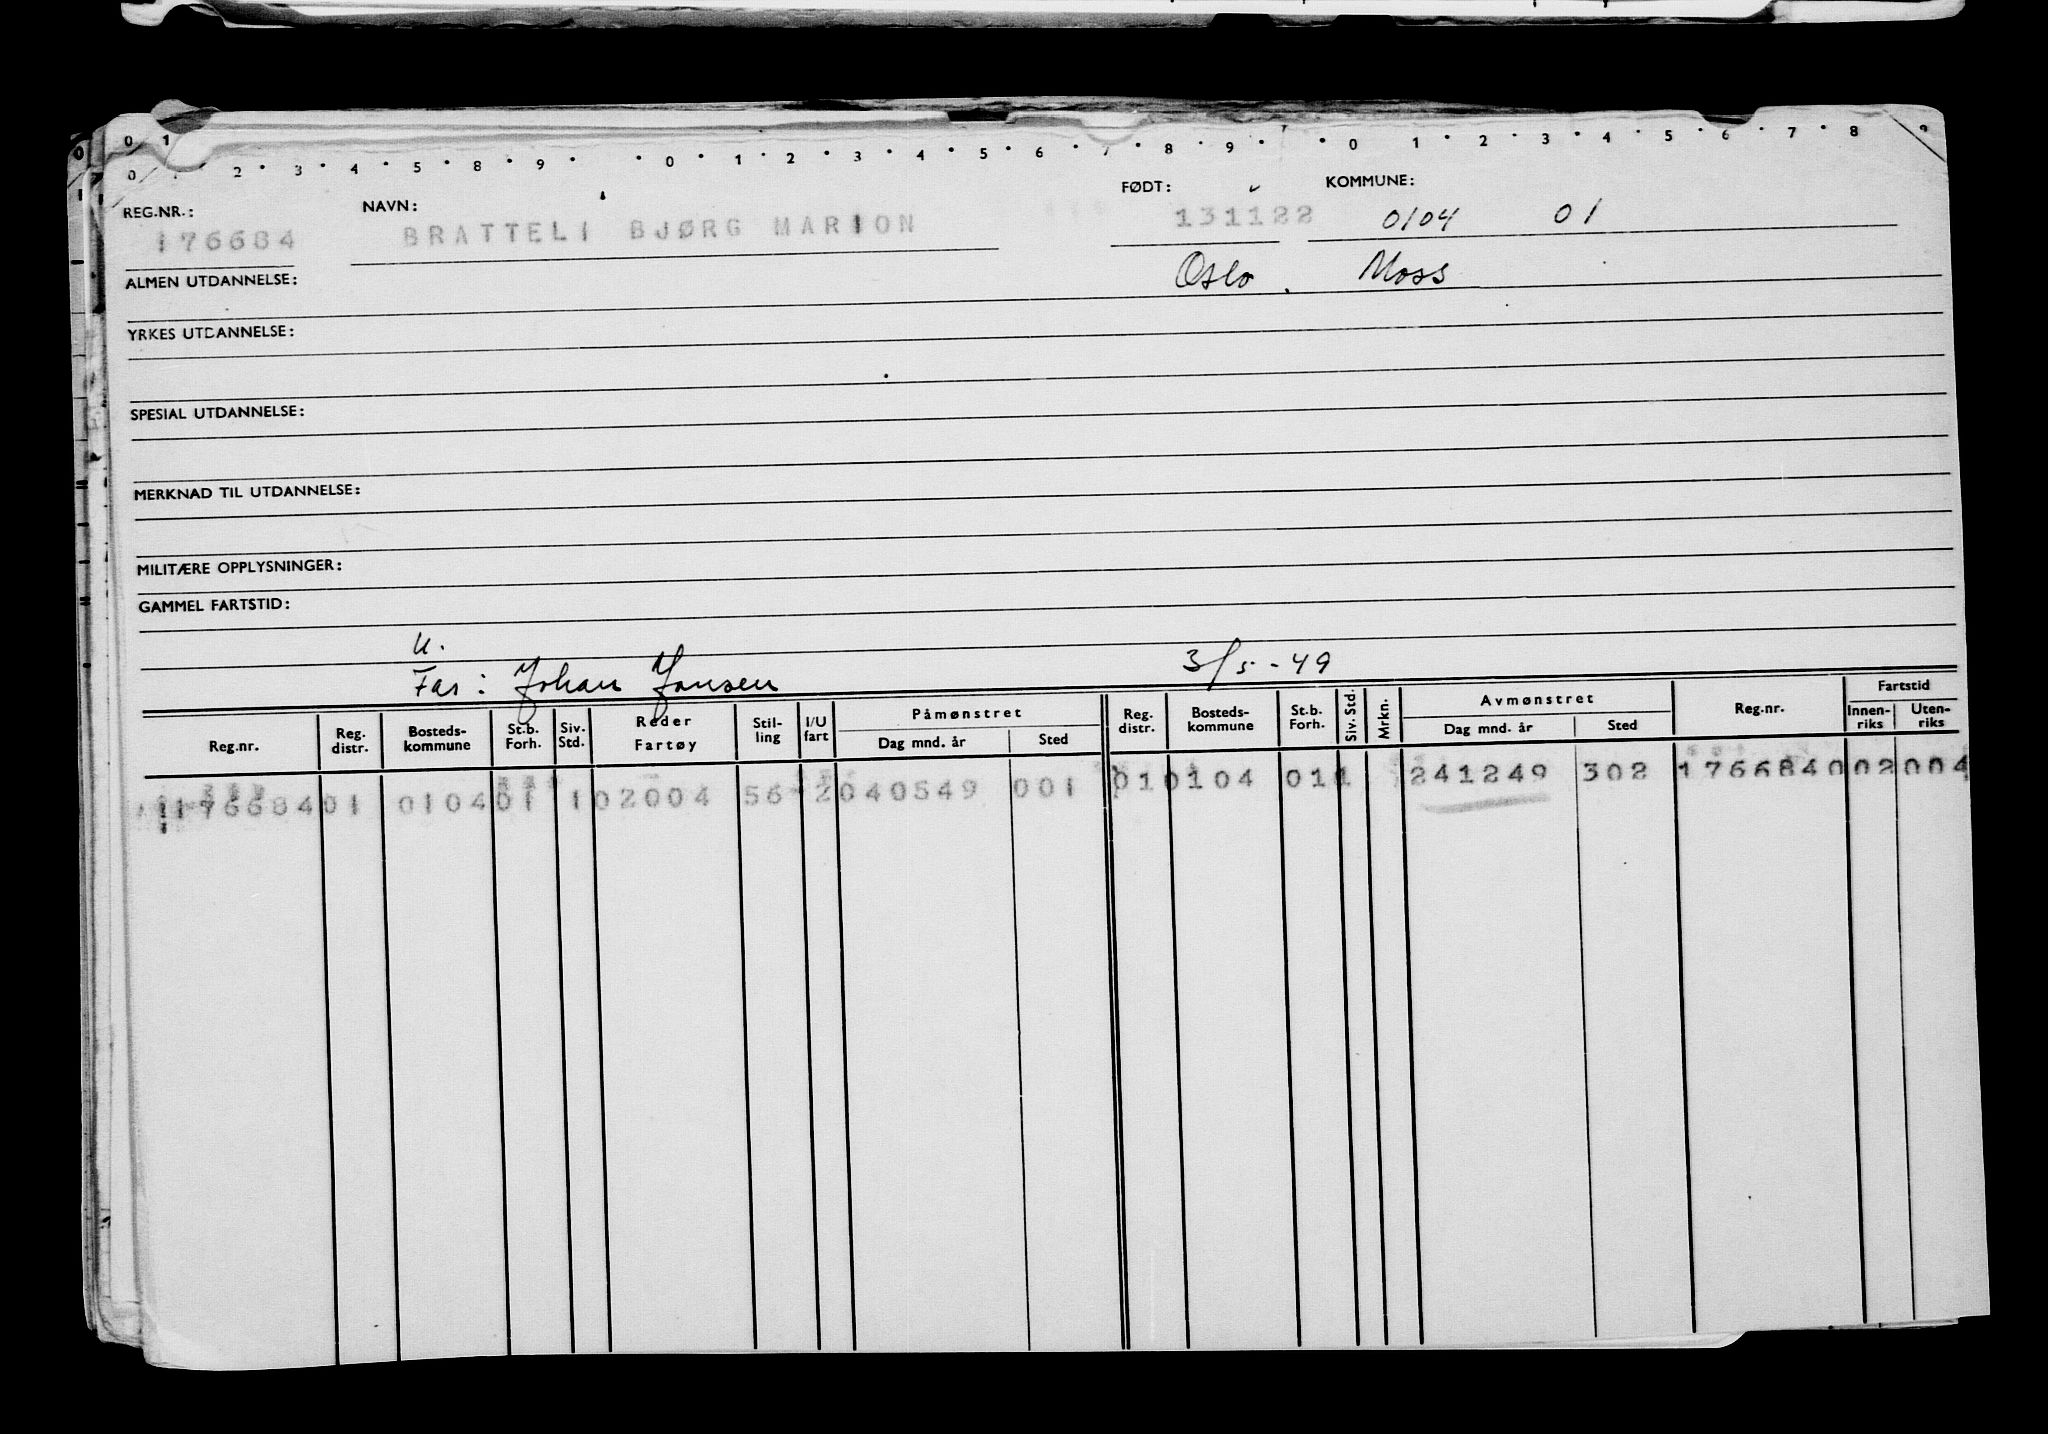 0 1
0 . 2 . 3 . 4 . 5 . 8 . 9 . . 0 . 1 . 2 . 3 . 4 . 5 . 6 . 7 . 8 . 9 . . 0 . 1 . 2 . 3 . 4 . 5 . 6 . 7 . 8
REG.NR.: NAVN: FØDT: KOMMUNE:
176684 BRATTELI BJØRG MARION 131122 0104 01
ALMEN UTDANNELSE: Oslo . Moss
YRKES UTDANNELSE:
SPESIAL UTDANNELSE:
MERKNAD TIL UTDANNELSE:
MILITÆRE OPPLYSNINGER:
GAMMEL FARTSTID:
U.
Far: Johan Jansen 3/5-49
Reg.nr. Reg. distr. Bosteds-kommune St.b. Forh. Siv. Std. Reder Fartøy Stil-ling I/U fart Påmønstret Dag mnd. år Sted Reg. distr. Bosteds-kommune St.b. Forh. Siv. Std. Mrkn. Avmønstret Dag mnd. år Sted Reg.nr. Fartstid Innen-riks Uten-riks
176684 01 0104 01 1 02004 56 2 040549 001 01 0104 01 1 241249 302 176684 002 004